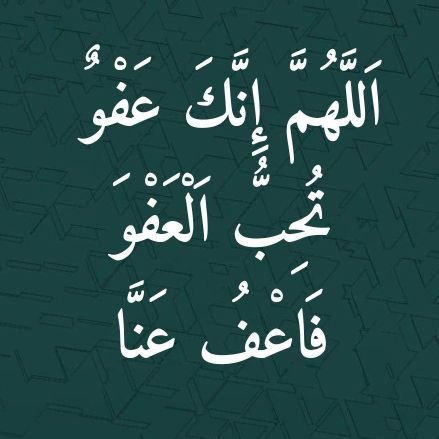 اَللَّهُمَّ إِنَّكَ عَفْوٌ
تُحِبُّ اَلْعَفْوَ
فَاَعْفُ عَنَّا